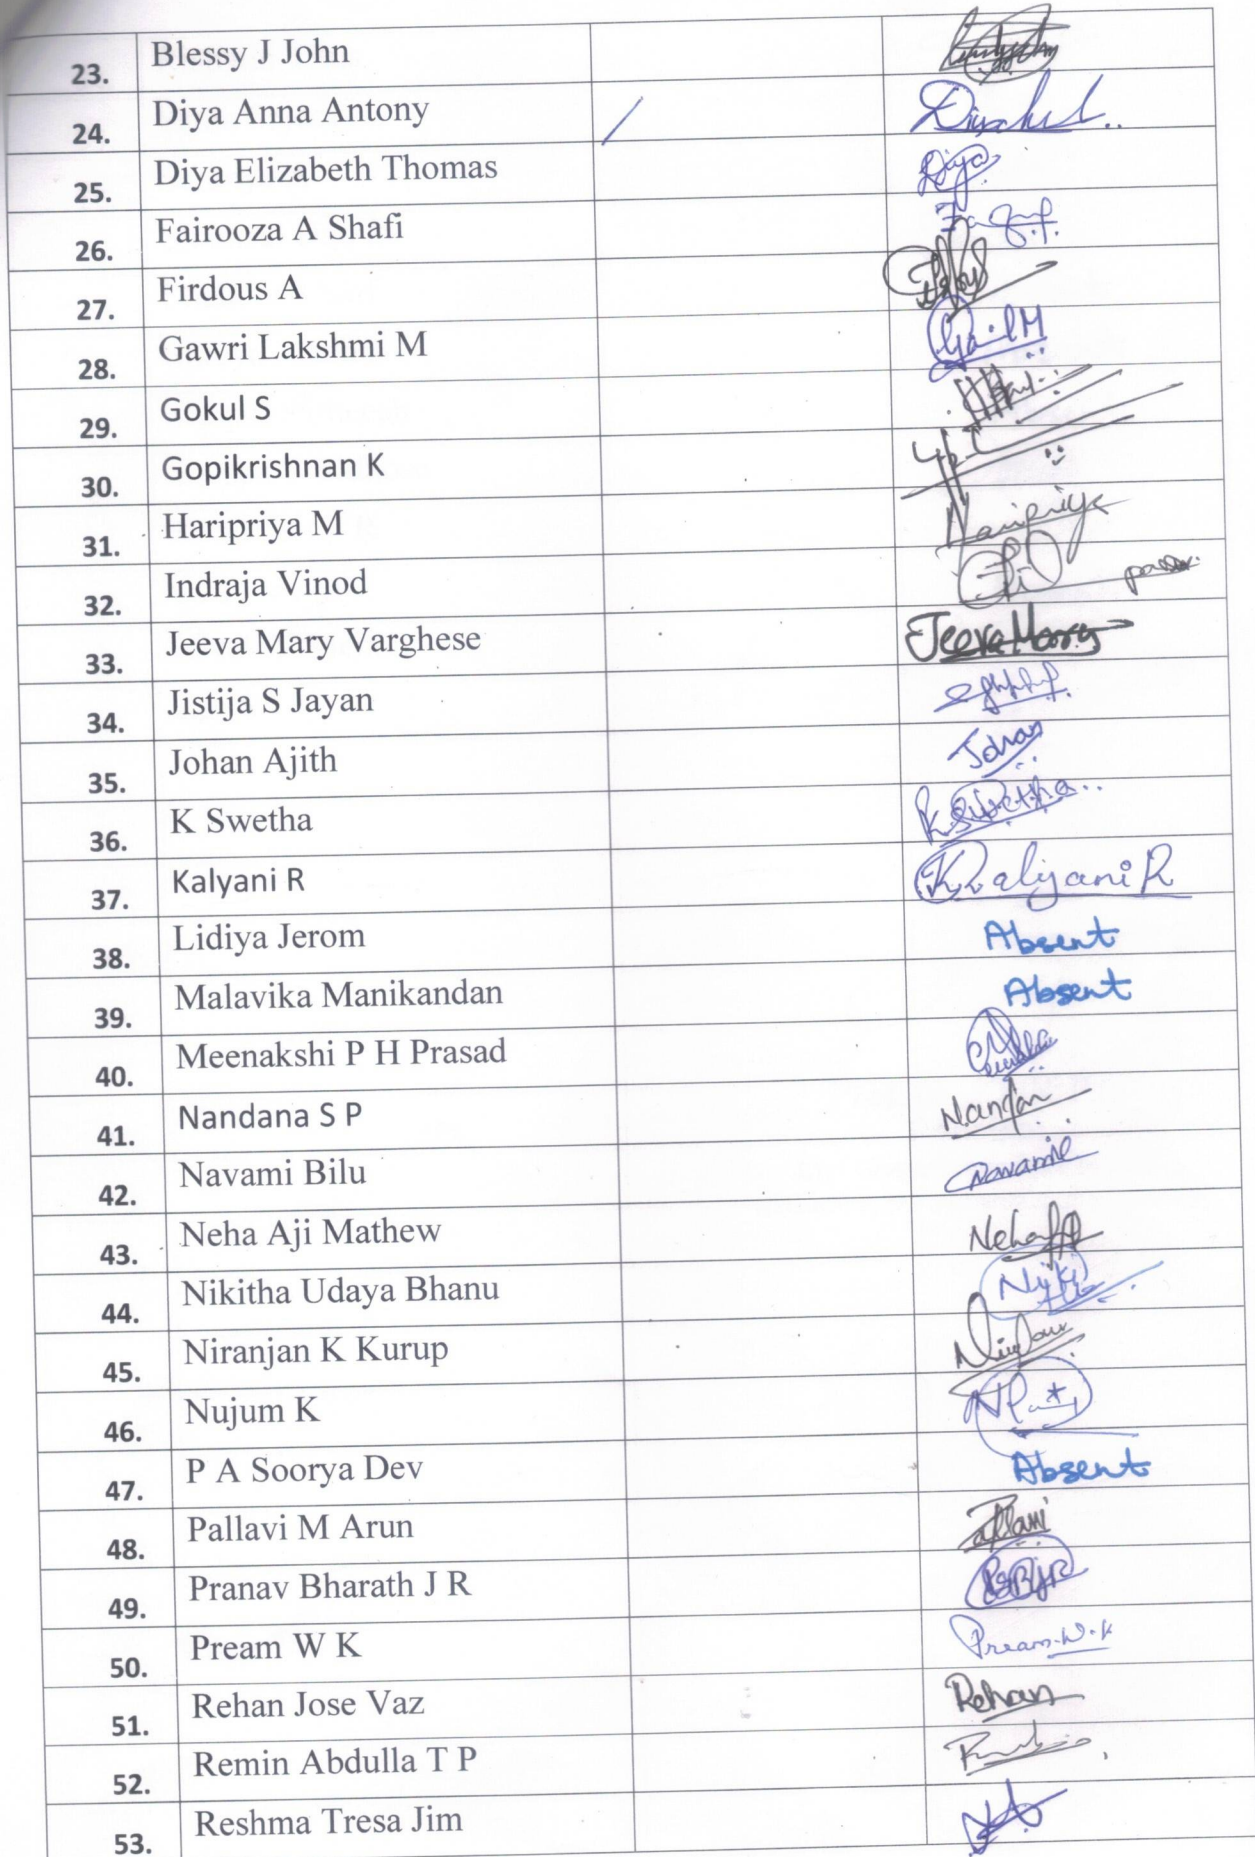 23. Blessy J John
24. Diya Anna Antony
25. Diya Elizabeth Thomas Diya
26. Fairooza A Shafi
27. Firdous A
28. Gawri Lakshmi M
29. Gokul S
30. Gopikrishnan K
31. Haripriya M Haripriya
32. Indraja Vinod
33. Jeeva Mary Varghese Jeeva Mary
34. Jistija S Jayan
35. Johan Ajith Johan
36. K Swetha K Swetha..
37. Kalyani R Kalyani R
38. Lidiya Jerom Absent
39. Malavika Manikandan Absent
40. Meenakshi P H Prasad
41. Nandana S P Nandan
42. Navami Bilu Navami
43. Neha Aji Mathew Neha
44. Nikitha Udaya Bhanu Niki
45. Niranjan K Kurup
46. Nujum K
47. P A Soorya Dev Absent
48. Pallavi M Arun Pallavi
49. Pranav Bharath J R PBJR
50. Pream W K Pream.W.K
51. Rehan Jose Vaz Rehan
52. Remin Abdulla T P
53. Reshma Tresa Jim